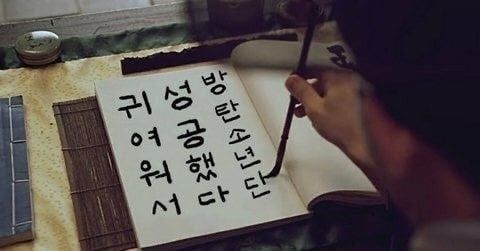 방탄소년단
성공했다
귀여워서